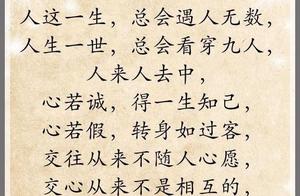 人这一生，总会遇人无数，
人生一世，总会看穿九人，
人来人去中，
心若诚，得一生知己，
心若假，转身如过客，
交往从来不随人心愿，
交心从来不是相互的，